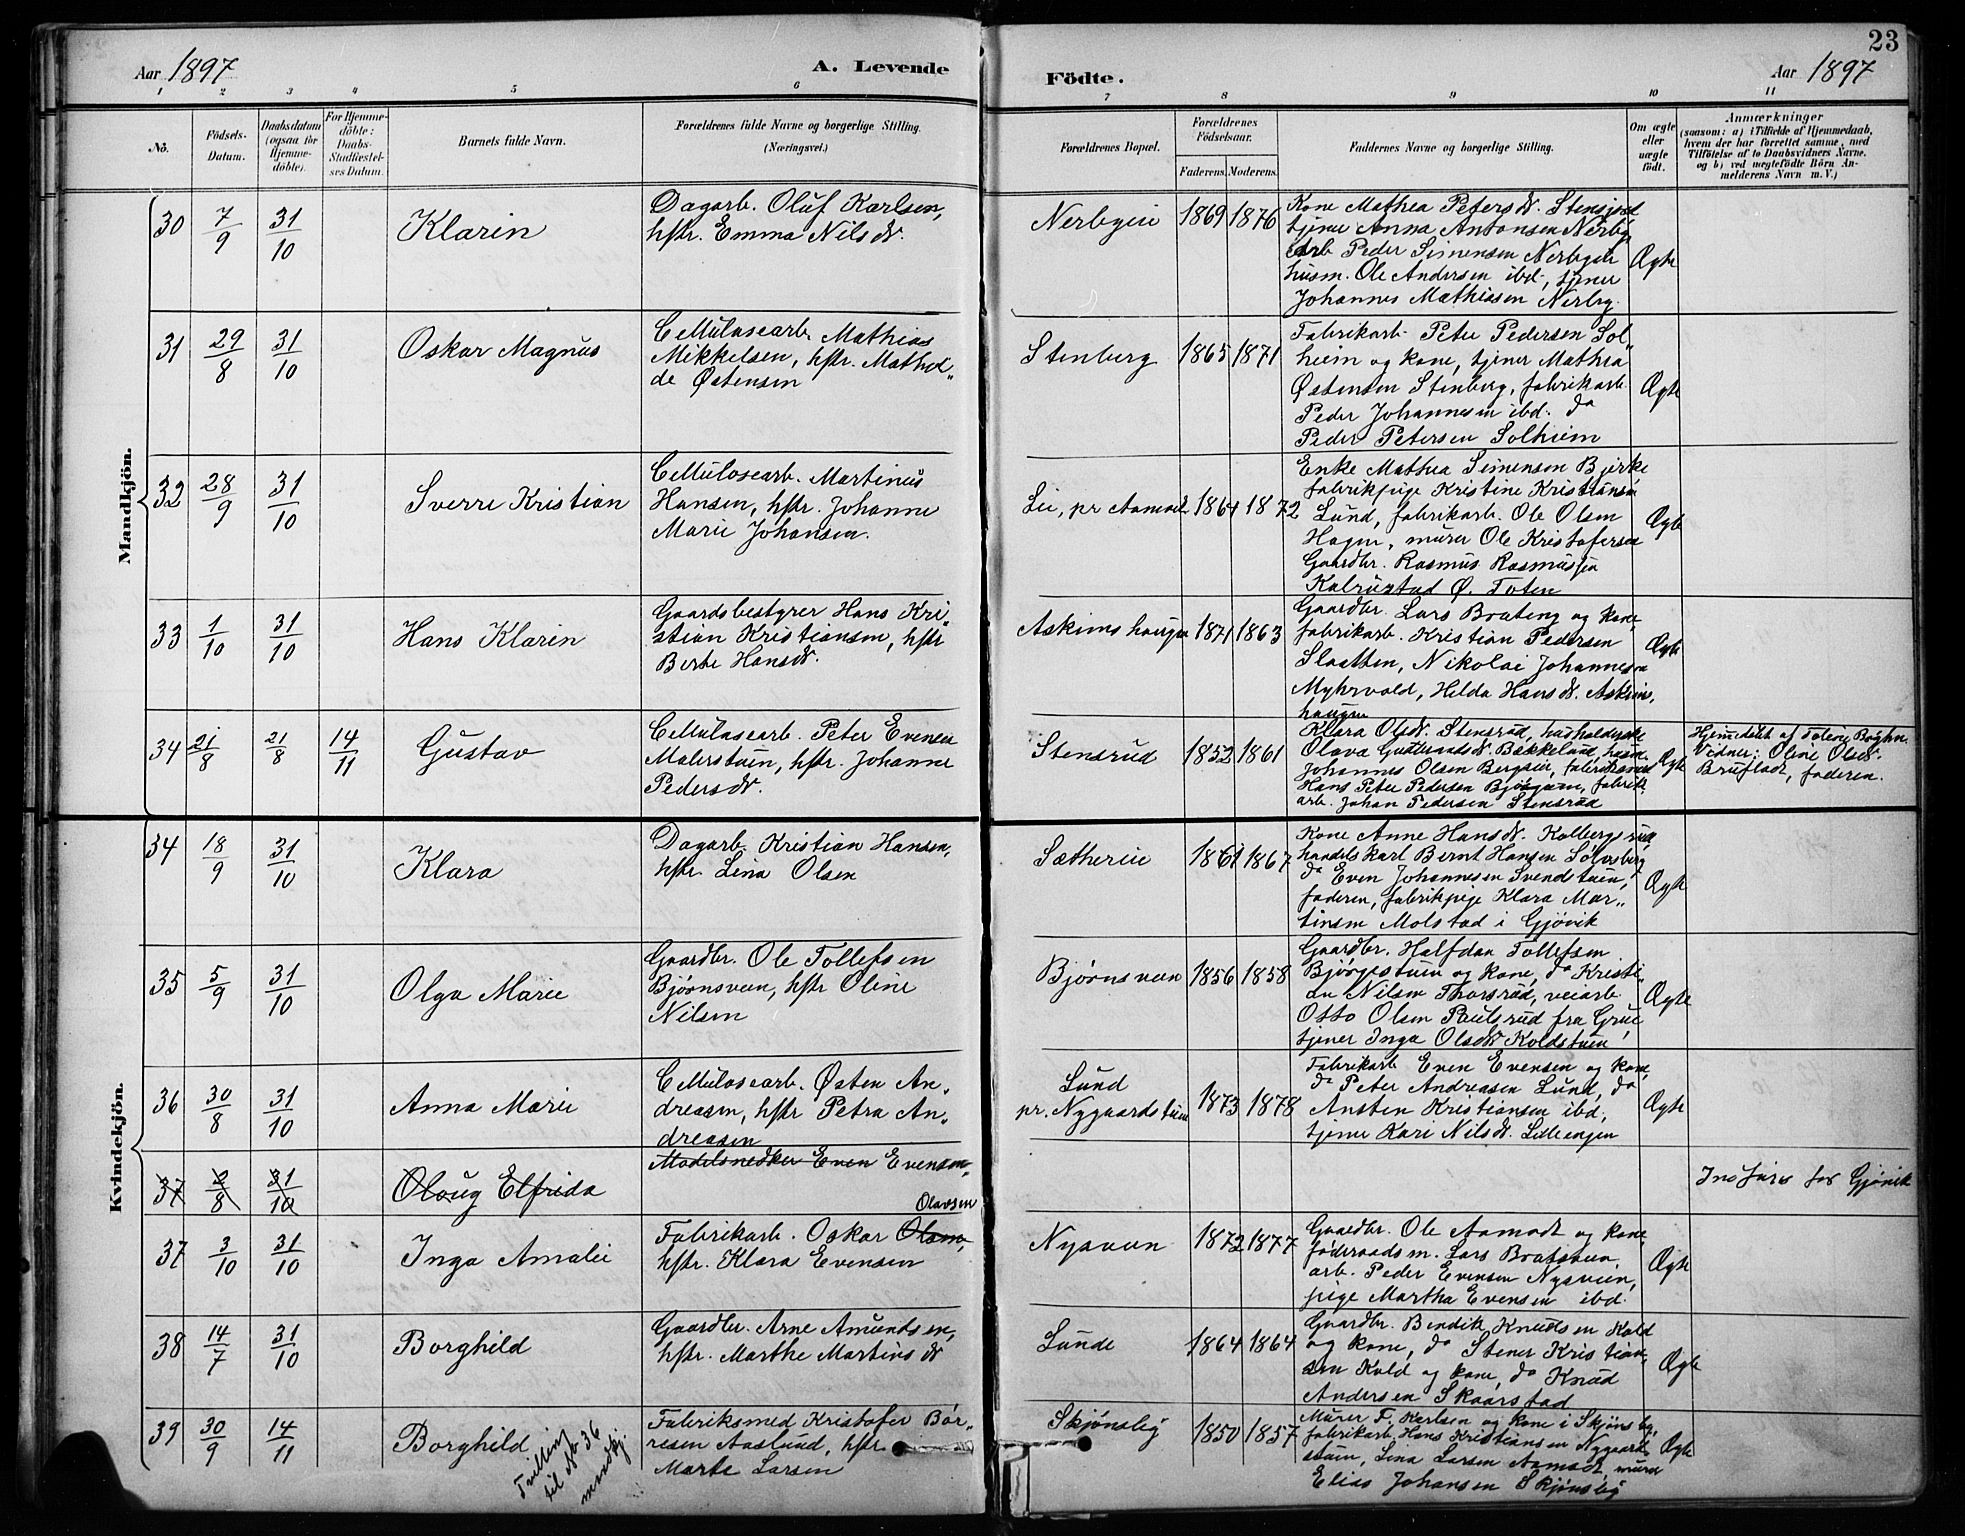 23
Aar 1897
A. Levende
Födte.
Aar 1897
1 2 3 4 5 6 7 8 9 10 11
No.
Födsels-
Datum.
Daabsdatum
(ogsaa for
Hjemme-
döbte).
For Hjemme-
döbte:
Daabs-
Stadfæstel-
ses Datum.
Barnets fulde Navn.
Forældrenes fulde Navne og borgerlige Stilling.
(Næringsvei.)
Forældrenes Bopæl.
Forældrenes
Födselsaar.
Faderens. Moderens.
Faddernes Navne og borgerlige Stilling.
Om ægte
eller
uægte
födt.
Anmærkninger
(saasom: a) i Tilfælde af Hjemmedaab,
hvem der har forrettet samme, med
Tilföielse af to Daabsvidners Navne.
og b) ved uægtefödte Börn An-
melderens Navn m. V.)
Mandkjön.
30 7/9 31/10 Klarin
Dagarb. Oluf Karlsen,
hstr. Emma Nilsd.
Nerbyeie 1869 1876
Kone Mathea Petersd. Stensjord
tjener Anna Antonsen Nerby
Arb Peder Simensen Nerbyeie
husm. Ole Andersen ibd., tjener
Johannes Mathiesen Nerby.
Ægte
31 29/8 31/10 Oskar Magnus
Cellulosearb. Mathias
Mikkelsen, hstr. Mathil„
de Østensen
Stenberg 1865 1871
Fabrikarb. Peter Pedersen Sol„
heim og kone, tjener Mathea
Østensen Stenberg, fabrikarb.
Peder Johannesen ibd. do
Peder Petersen Solheim
Ægte
32 28/9 31/10 Sverre Kristian
Cellulosearb. Martinus
Hansen, hstr. Johanne
Marie Johansen.
Lie, pr Aamodt 1864 1872
Enke Mathea Simensen Bjerke
fabrikpige Kristine Kristiansen
Lund, fabrikarb. Ole Olsen
Hagen, murer Ole Kristofersen
Gaardbr. Rasmus Rasmussen
Kalrustad Ø. Toten
Ægte
33 1/10 31/10 Hans Klarin
Gaardsbestyrer Hans Kri„
stian Kristiansen, hstr
Berte Hansd.
Askimshaugen 1871 1863
Gaardbr. Lars Braateng og kone,
fabrikarb. Kristian Pedersen
Slaatten, Nikolai Johannesen
Myhrvold, Hilda Hansd. Askims„
haugen
Ægte
34 21/8 21/8 14/11 Gustav
Cellulosearb. Peter Evensen
Malerstuen, hstr. Johanne
Pedersd.
Stensrud 1852 1861
Klara Olsd. Stensrud, husholderske
Olava Gulbrandsd. Bakkelund, husm.
Johannes Olsen Bergseie, fabrikarb.
Hans Peter Pedersen, fabrik„
arb. Johan Pedersen Stensrud
Ægte
Hjemmedøbt af
Vidner: Oline Olsd.
Brufladt, faderen.
Kvindekjön.
34 18/9 31/10 Klara
Dagarb. Kristian Hansen,
hstr. Lina Olsen
Sætherie 1861 1867
Kone Anne Hansd. Kolbergsrud
handelskarl Bernt Hansen Solvsberg
do Even Johannesen Svendstuen,
faderen, fabrikpige Klara Mar„
tinsen Molstad i Gjövik
Ægte
35 5/9 31/10 Olga Marie
Gaardbr. Ole Tollefsen
Bjørnsveen, hstr Oline
Nilsen
Bjørnsveen 1856 1858
Gaardbr. Halfdan Tollefsen
Bjørgestuen og kone, do Kristi„
an Nilsen Thorsrud, veiarb.
Otto Olsen Paulsrud fra Grue
tjener Inga Olsd. Koldstuen
Ægte
36 30/8 31/10 Anna Marie
Cellulosearb. Østen An„
dreasen, hstr Petra An„
dreasen
Lund
pr. Nygaardstuen 1873 1878
Fabrikarb Even Evensen og kone,
do Peter Andreasen Lund, do
Ansten Kristiansen ibd,
tjener Kari Nilsd. Lilleengen
Ægte
37 2/8 31/10 Oloug Elfrida
Modelsnedker Even Evensen
Indføres for Gjövik
37 3/10 31/10 Inga Amalie
Olavsen
Fabrikarb. Oskar Olsen,
hstr. Klara Evensen
Nysveen 1872 1877
Gaardbr. Ole Aamodt og kone,
föderaadsm. Lars Braatstuen,
arb. Peder Evensen Nysveen,
pige Martha Evensen ibd.
Ægte
38 14/7 31/10 Borghild
Gaardbr. Arne Amundsen,
hstr. Marthe Martinsd
Lunde 1864 1864
Gaardbr. Bendik Knudsen Kold
og kone, do Stener Kristian„
sen Kold og kone, do Knud
Andersen Skaarstad
Ægte
39 30/9 14/11 Borghild
Tvilling
til No 36
mandkj.
Fabriksmed Kristofer Bör„
resen Aaslund, hstr
Marte Larsen
Skjønsby 1850 1857
Murer F. Karlsen og kone i Skjønsby,
fabrikarb. Hans Kristiansen Nygaard„
stuen, Lina Larsen Aamodt, murer
Elias Johansen Skjønsby
Ægte